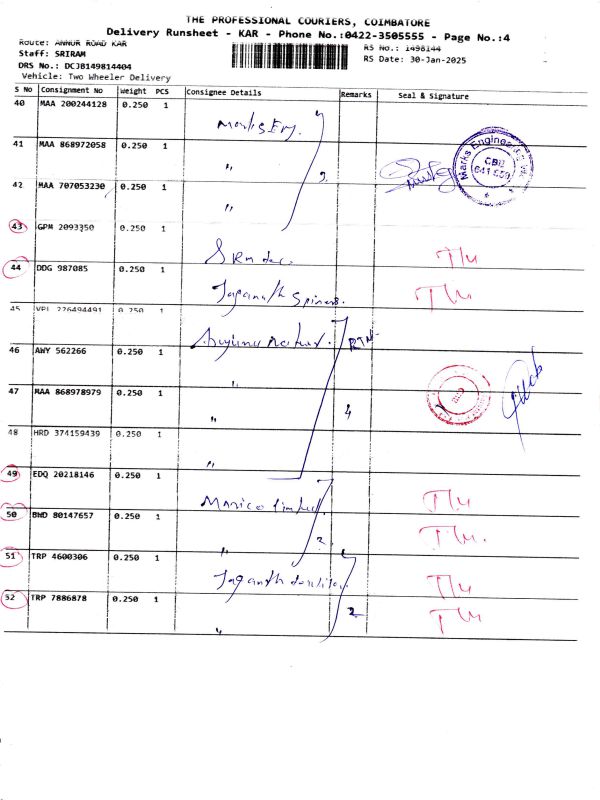 THE PROFESSIONAL COURIERS, COIMBATORE
Delivery Runsheet - KAR - Phone No.:0422-3505555 - Page No.:4
Route: ANNUR ROAD KAR
RS No.: 1498144
Staff: SRIRAM
RS Date: 30-Jan-2025
DRS No.: DCJ8149814404
Vehicle: Two Wheeler Delivery
S No Consignment No Weight PCS Consignee Details Remarks Seal & Signature
40 MAA 200244128 0.250 1
41 MAA 868972058 0.250 1
"
Marks Engineering
CBE
42 MAA 707053230 0.250 1
"
3
43 GPM 2093350 0.250 1
44 DDG 987085 0.250 1
45 VPL 226494491 0.250 1
RTN
46 AWY 562266 0.250 1
"
47 MAA 868978979 0.250 1
"
4
48 HRD 374159439 0.250 1
"
49 EDQ 20218146 0.250 1
Marico limited
50 BWD 80147657 0.250 1
"
2
51 TRP 4600306 0.250 1
52 TRP 7886878 0.250 1
"
2